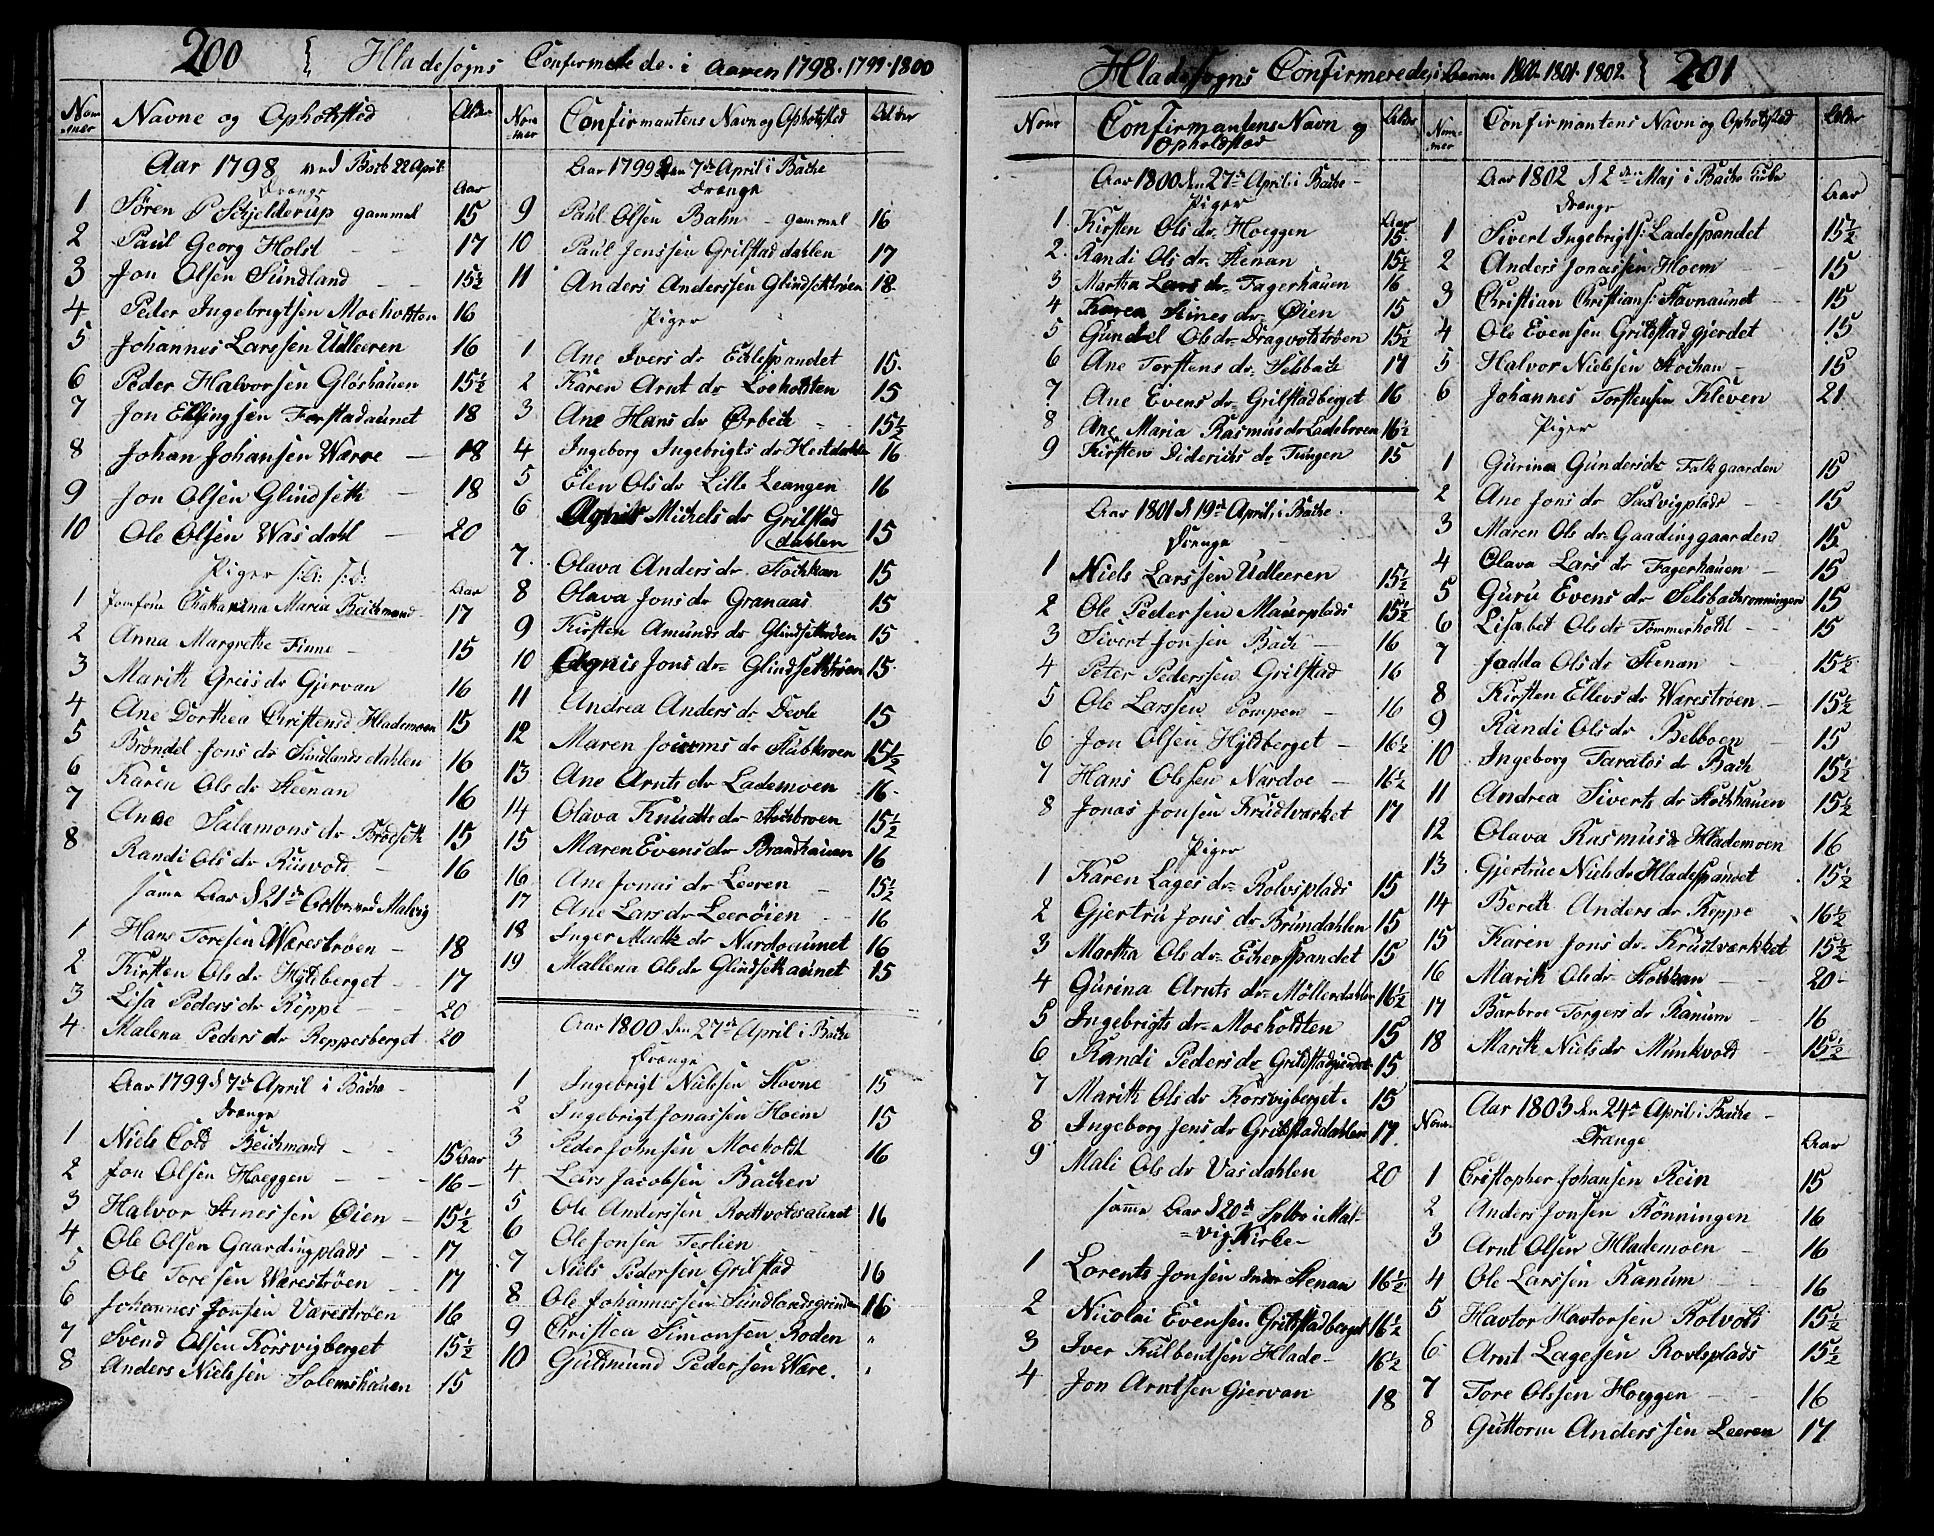 200 Hladesogns Confirmerede i Aaren 1798. 1799. 1800
Nommer Navne og Opholdsted Alder
Aar 1798 ved Bak: 22 April
Drenge
Aar
1 Søren P Schjelderup gammel 15
2 Paul Georg Holst 17
3 Jon Olsen Sundland 15½
4 Peder Ingebrigtsen Moeholten 16
5 Johannes Larssen Udleeren 16
6 Peder Halvorsen Gløshauen 15½
7 Jon Ellingsen Forstadaunet 18
8 Johan Johansen Wære 18
9 Jon Olsen Glindseth 18
10 Ole Olsen Wasdahl 20
Piger
Aar
1 Jomfrue Chatharina Maria Beichmand 17
2 Anna Margrethe Finne 15
3 Marith Greis dr Gjervan 16
4 Ane Dorthea Christensd Hlademoen 15
5 Brøndel Jons dr Sundlandsdahlen 16
6 Karen Ols dr Steenan 16
7 Anne Salamons dr Brødseth 15
8 Randi Ols dr Riisvold 16
samme Aar d 21de Octbr ved Malvig
1 Hans Toresen Wærestrøen 18
2 Kirsten Ols dr Hÿldberget 17
3 Lisa Peders dr Reppe 20
4 Malena Peders dr Reppesberget 20
Aar 1799 d 7de April i Bache
Drenge
1 Niels Cold Beichmand 15 Aar
2 Jon Olsen Hoeggen 16
3 Halvor Stenessen Øien 15½
4 Ole Olsen Gaardingplads 17
5 Ole Toresen Wærestrøen 17
6 Johannes Jonsen Varestrøen 16
7 Svend Olsen Korsvigberget 15½
8 Anders Nielssen Solemshauen 15
Nommer Confirmantens Navn og Opholdsted Alder
Aar 1799 Den 7de April i Bache
Drenge
9 Paul Olsen Bahn gammel 16
10 Paul Jenssen Grilstaddahlen 17
11 Anders Anderssen Glindsethrøen 18
Piger
1 Ane Ivers dr Eklespandet 15
2 Karen Arnt dr Loeholten 15
3 Ane Hans dr Ørbech 15½
4 Ingeborg Ingebrigts dr Hestdahlen 16
5 Elen Ols dr Lille Leangen 16
6 Agnis Michels dr Grilstad
dahlen 15
7 Olava Anders dr Stochhan 15
8 Olava Jons dr Granaas 15
9 Kirsten Amunds dr Glindsethrøen 15
10 Agnis Jons dr Glindsethrøen 15
11 Andrea Anders dr Devle 15
12 Maren Joiums dr Stubbroen 15½
13 Ane Arnts dr Lademoen 16
14 Olava Knudts dr Stochbroen 15½
15 Maren Evens dr Brandhauen 16
16 Ane Jonas dr Leeren 15½
17 Ane Lars dr Leerøien 16
18 Inger Madts dr Nardoaunet 16
19 Mallena Ols dr Glindsethaunet 15
Aar 1800 den 27de April i Bache
Drenge
1 Ingebrigt Nielssen Stavne 15
2 Ingebrigt Jonassen Hoem 15
3 Peder Johnsen Moeholdt 16
4 Lars Jacobsen Bachen
5 Ole Anderssen Rodtvoldsaunet 16
6 Ole Jonsen Teslien
7 Niels Pedersen Grilstad 16
8 Ole Johannessen Sundlandsgrinden 16
9 Christen Simonsen Roden "
10 Gudtmund Pedersen Wære "
Hladesogns Confirmerede i Aaren 1800. 1801. 1802. 201
Nomr Confirmantens Navn og Opholdsted Alder
Aar 1800 den 27de April i Bache
Piger
Aar
1 Kirsten Ols dr Hoeggen 15
2 Randi Ols dr Stenan 15½
3 Martha Lars dr Fagerhauen 16
4 Karen Stines dr Øien 15
5 Gundel Ols dr Dragvoldstrøen 15½
6 Ane Torstens dr Selsbach 17
7 Ane Evens dr Grilstadberget 16
8 Ane Maria Rasmus dr Ladebroen 16½
9 Kirsten Diderichs dr Tungen 15
Aar 1801 d 19de April i Bache
Drenge
1 Niels Larssen Udleeren 15½
2 Ole Pedersen Mauerplads 15½
3 Sivert Jonsen Bach 16
4 Peter Pederssen Grilstad 16
5 Ole Larssen Pompen 16
6 Jon Olsen Hÿldberget 16½
7 Hans Olssen Nardoe 16½
8 Jonas Jonsen Krudtværket 17
Piger
1 Karen Lages dr Rolvsplads 15
2 Gjertru Jons dr Brundahlen 15
3 Martha Ols dr Eklesspandet 15
4 Gurina Arnts dr Møllerdahlen 16½
5 Ingebrigts dr Moeholdten 15
6 Randi Peders dr Grilstadgjerdet 15
7 Marith Ols dr Korsvigberget 15
8 Ingeborg Jens dr Grilstaddahlen 17
9 Mali Ols dr Vasdahlen 20
samme Aar d 20de Septbr i Mal-
vig Kirke
1 Lorents Jonsen Stenan 16½
2 Nicolai Evensen Grilstadberget 16½
3 Iver Kulbentsen Hlade 16½
4 Jon Arntsen Gjervan 18
Nommer Confirmantens Navn og Opholdsted Alder
Aar 1802 d 2den Maj i Bache Kirke
Drenge
Aar
1 Sivert Ingebrigts: Ladespandet 15½
2 Anders Jonassen Hoem 15
3 Christian Christians: Stavnaunet 15
4 Ole Evensen Grilstadgjerdet 15
5 Halvor Nielsen Stochan 15
6 Johannes Torstensen Kleven 21
Piger
1 Gurina Gunders dr Falkgaarden 15
2 Ane Jons dr Sadvigplads 15
3 Maren Ols dr Gaadinggaarden 15
4 Olava Lars dr Fagerhauen 15
5 Guru Evens dr Selsbachronningen 15
6 Lisabet Ols dr Tommerhold 15
7 Jadda Ols dr Stenan 15½
8 Kirsten Ellevs dr Warestrøen 15½
9 Randi Ols dr Belboen 15
10 Ingeborg Taralds dr Bach 15½
11 Andrea Siverts dr Stochhauen 15½
12 Olava Rasmus dr Hlademoen 16
13 Gjertrue Niels dr Hladespandet 15½
14 Bereth Anders dr Reppe 16½
15 Karen Jons dr Krudtværkket 15½
16 Marith Ols dr Stokhan 20
17 Barbroe Torgers dr Ranum 16
18 Marith Niels dr Munkvold 15½
Nomr Aar 1803 den 24de April i Bache
Drenge
Aar
1 Cristopher Johansen Rein 15
2 Anders Jonsen Rönningen 16
3 Arnt Olsen Hlademoen 16
4 Ole Larssen Ranum 16
5 Havtor Havtorsen Rotvold 15½
6 Arnt Lagesen Rovlsplads 15½
7 Tore Olssen Hoeggen 16
8 Guttorm Anderssen Leeren 17